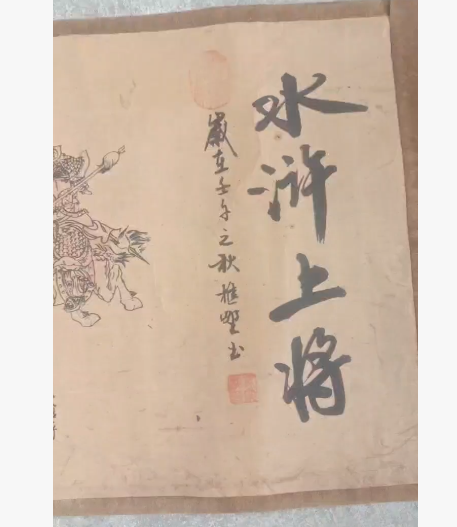 水浒上将
歲在壬午之秋樵野书